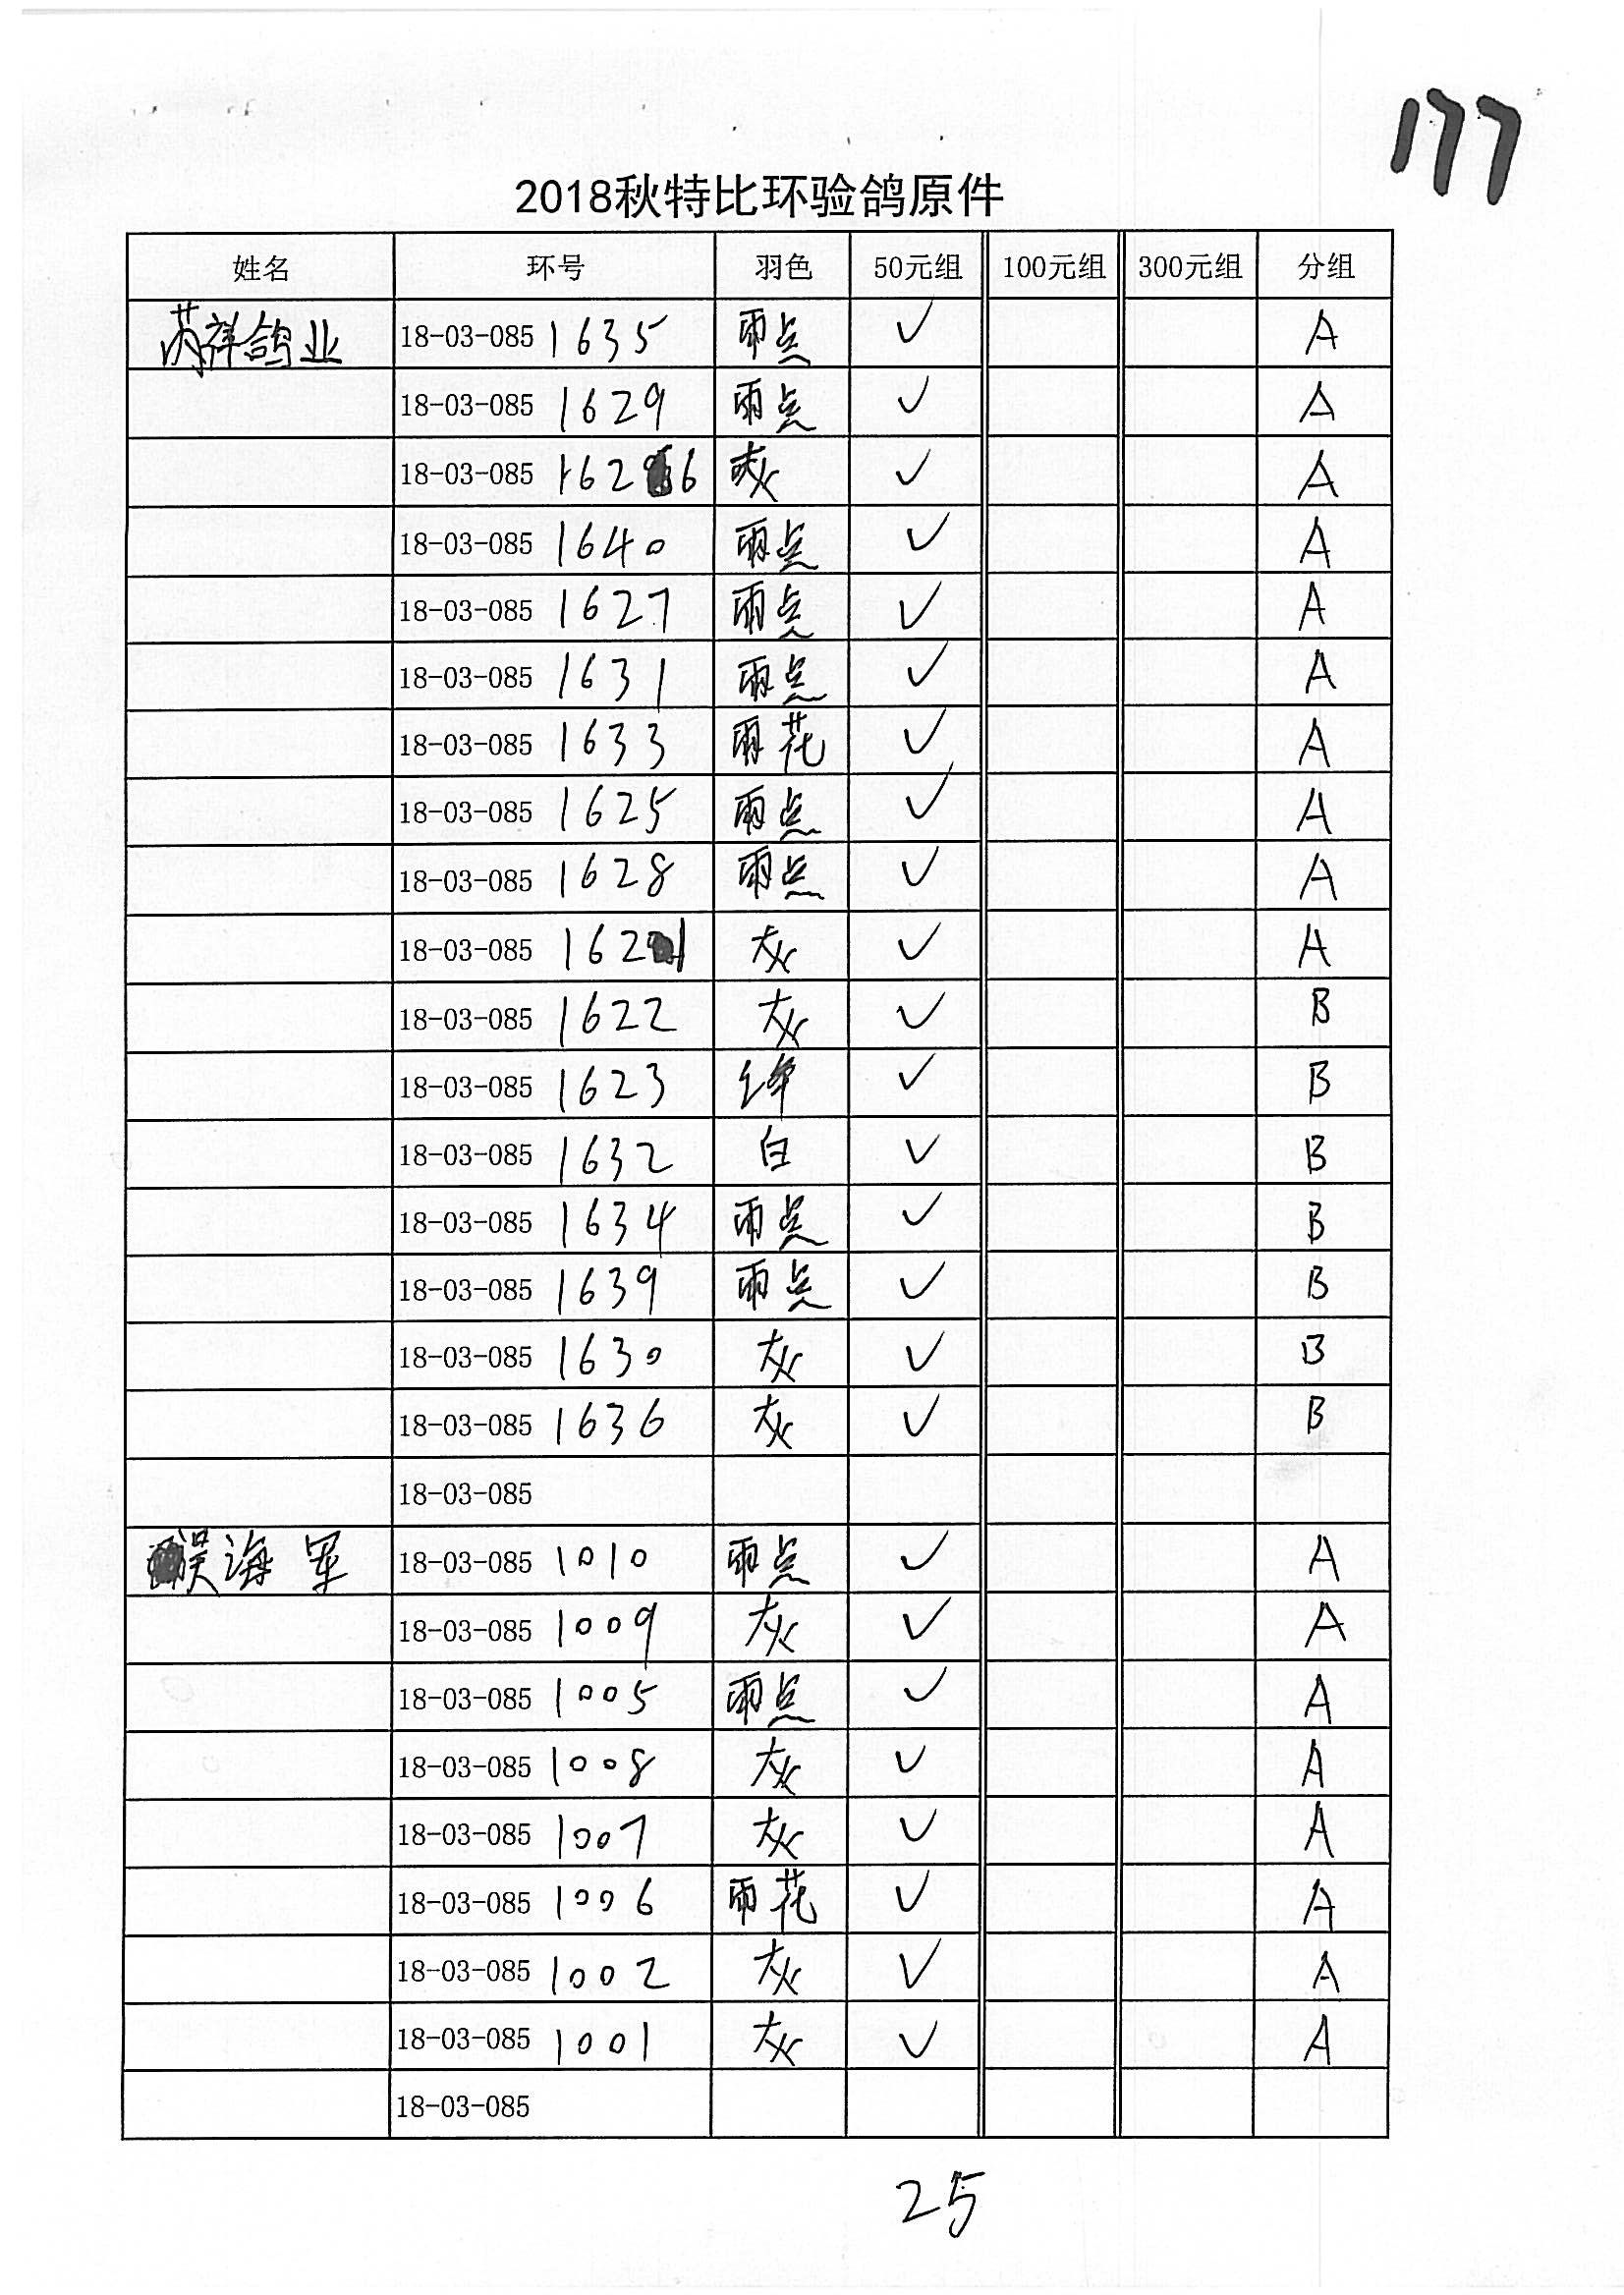 177
2018秋特比环验鸽原件
姓名 环号 羽色 50元组 100元组 300元组 分组
祥鸽业 18-03-085 1635 雨点 ✓ A
18-03-085 1629 雨点 ✓ A
18-03-085 1626 灰 ✓ A
18-03-085 1640 雨点 ✓ A
18-03-085 1627 雨点 ✓ A
18-03-085 1631 雨点 ✓ A
18-03-085 1633 雨花 ✓ A
18-03-085 1625 雨点 ✓ A
18-03-085 1628 雨点 ✓ A
18-03-085 1621 灰 ✓ A
18-03-085 1622 灰 ✓ B
18-03-085 1623 绛 ✓ B
18-03-085 1632 白 ✓ B
18-03-085 1634 雨点 ✓ B
18-03-085 1639 雨点 ✓ B
18-03-085 1630 灰 ✓ B
18-03-085 1636 灰 ✓ B
18-03-085
吴海军 18-03-085 1010 雨点 ✓ A
18-03-085 1009 灰 ✓ A
18-03-085 1005 雨点 ✓ A
18-03-085 1008 灰 ✓ A
18-03-085 1007 灰 ✓ A
18-03-085 1006 雨花 ✓ A
18-03-085 1002 灰 ✓ A
18-03-085 1001 灰 ✓ A
18-03-085
25